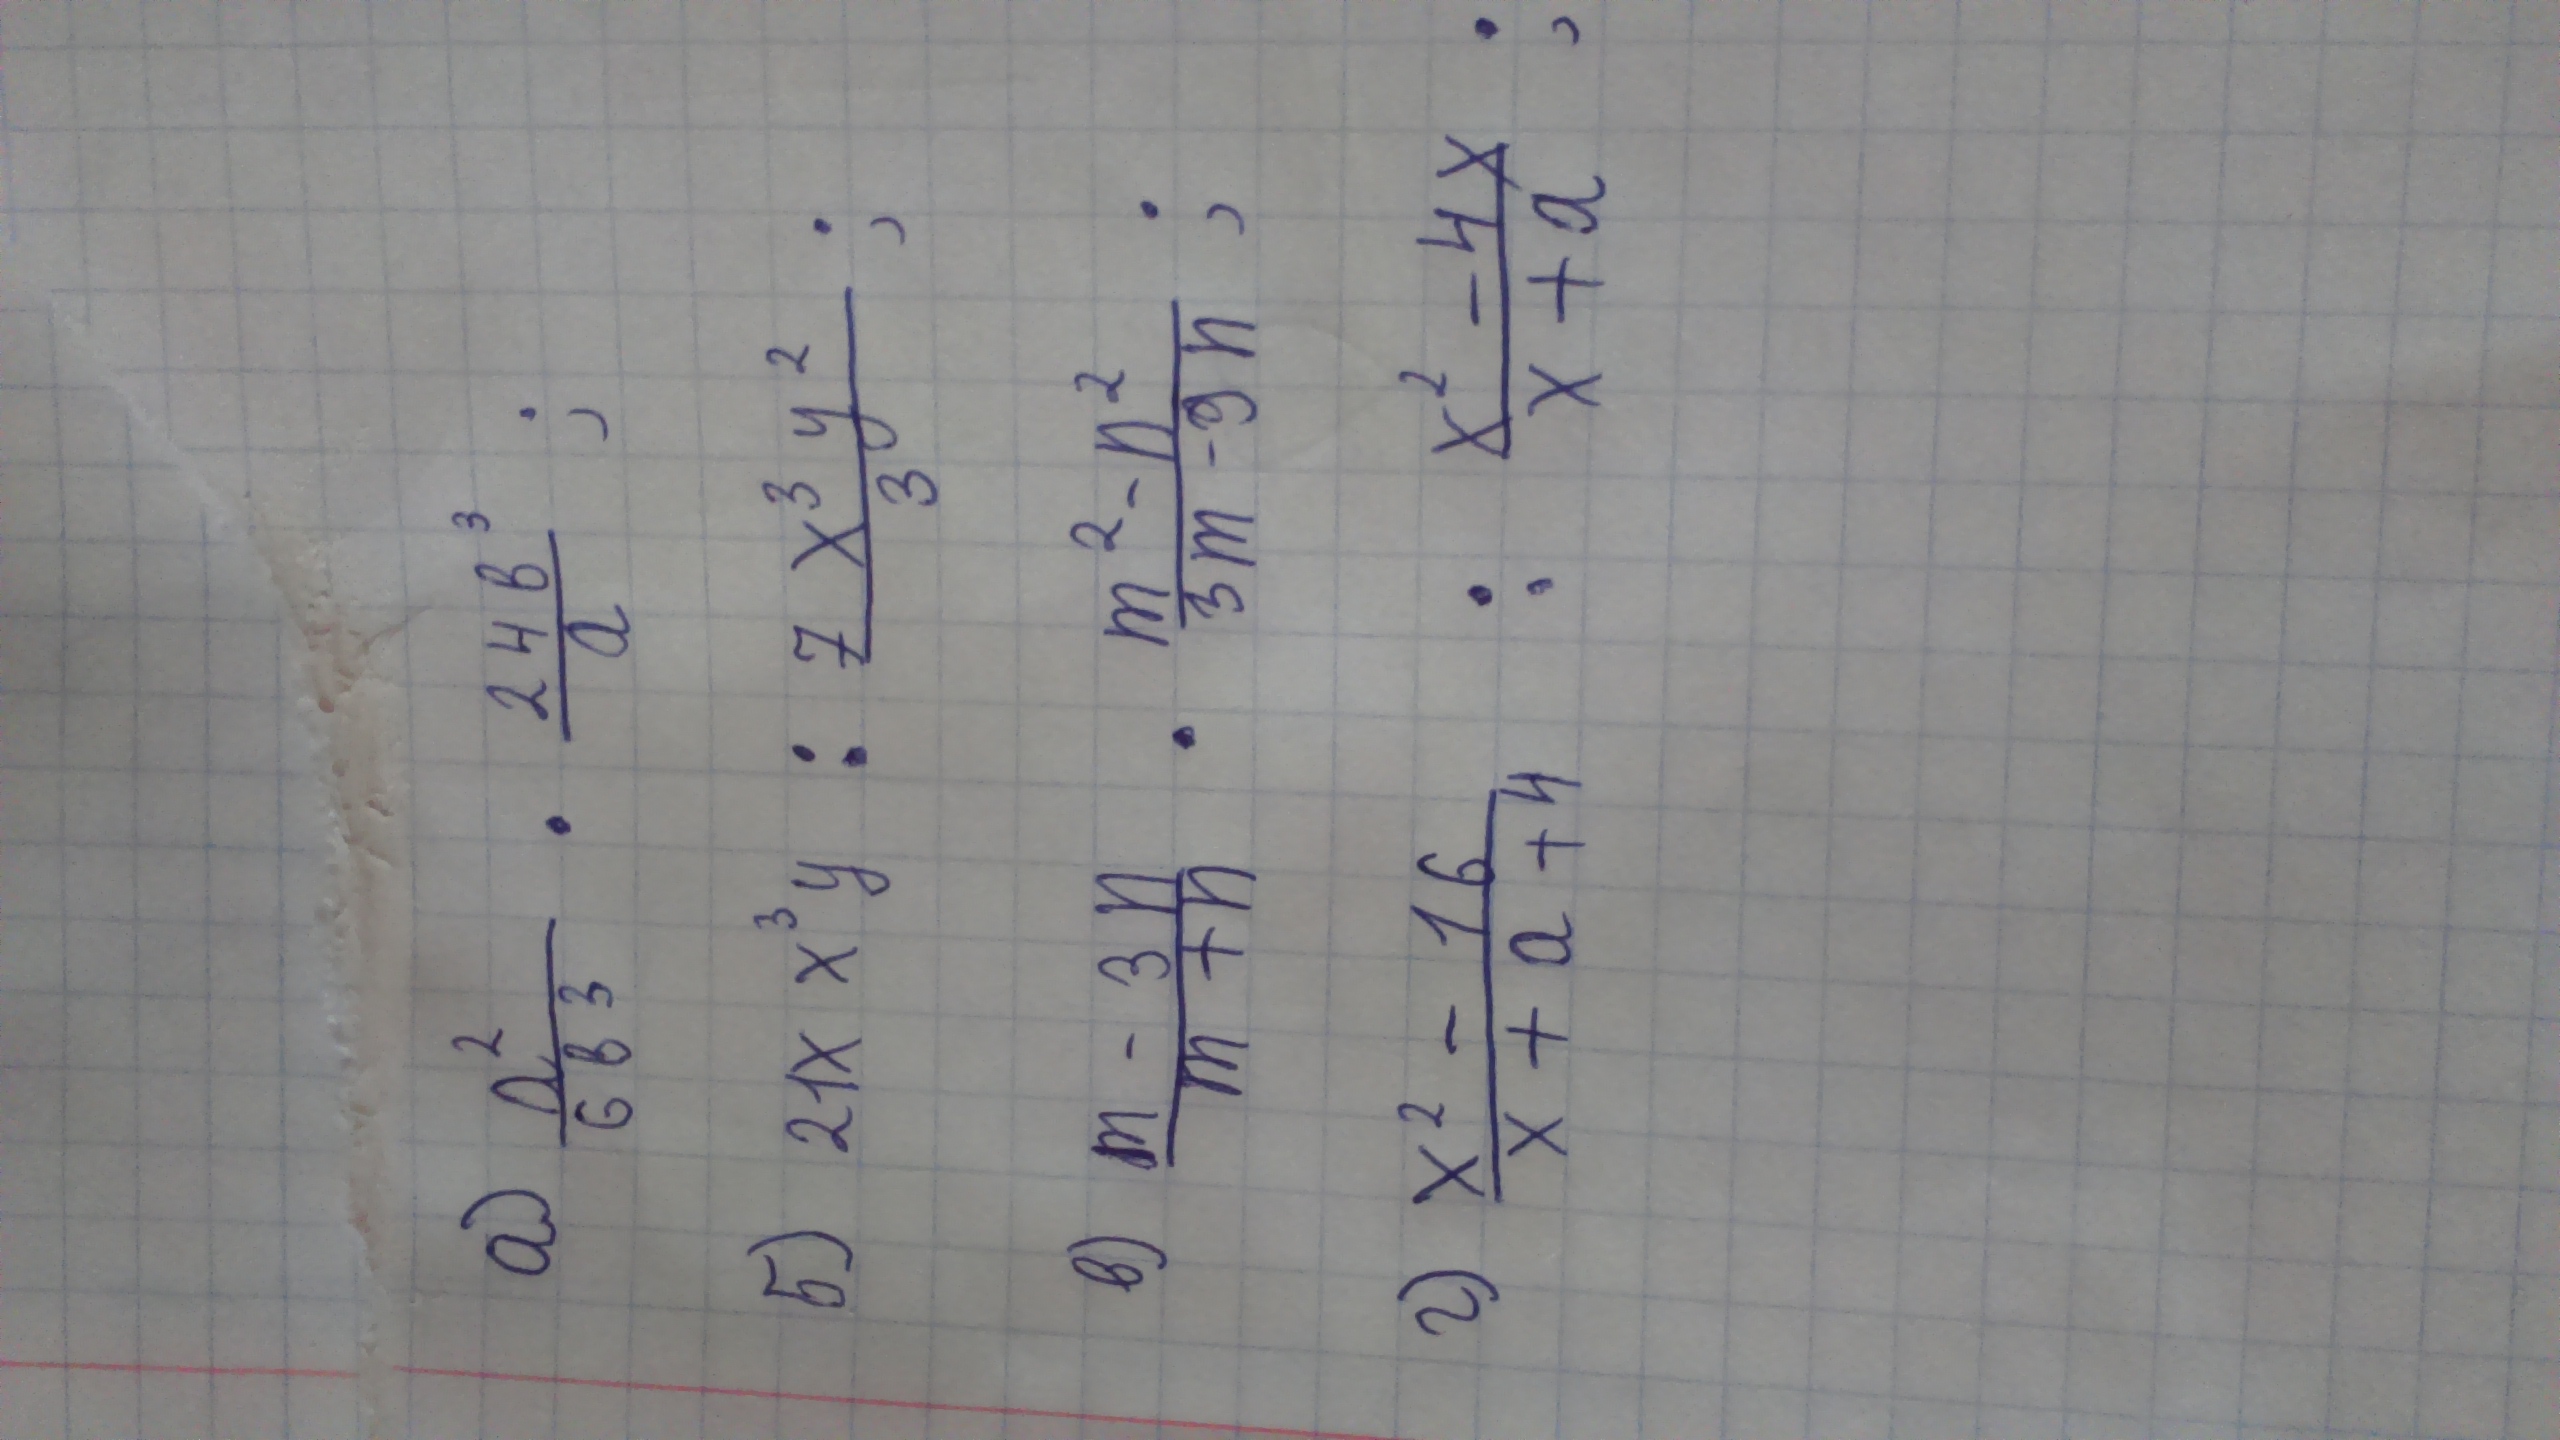 а) a²/6в3 · 24в³/a ;
б) 21x x³y : 7x³y²/3 ;
в) m - 3n/m + n · m² - n²/3m - 9n ;
г) x² - 16/x + a + 4 : x² - 4x/x + a ;